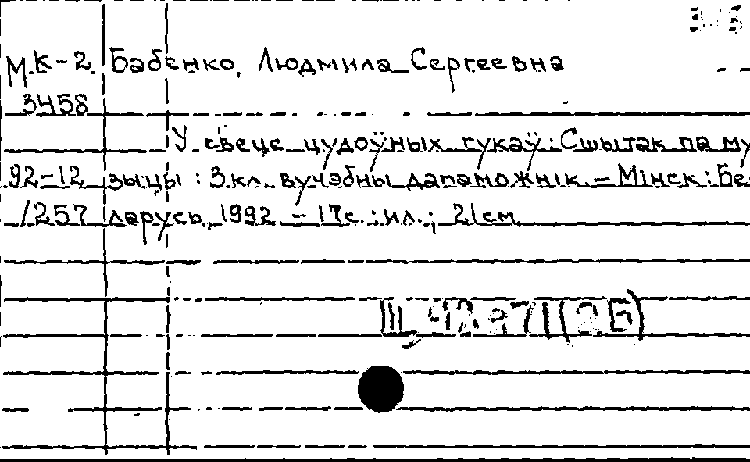 МК-2 Бабенко, Людмила Сергеевна
3458
У свеце цудоўных гукаў: Сшытак па му
92-12 зыцы: 3 кл. вучэбны дапаможнік. - Мінск: Бе
1257 ларусь, 1992. - 17с.: ил.; 21см